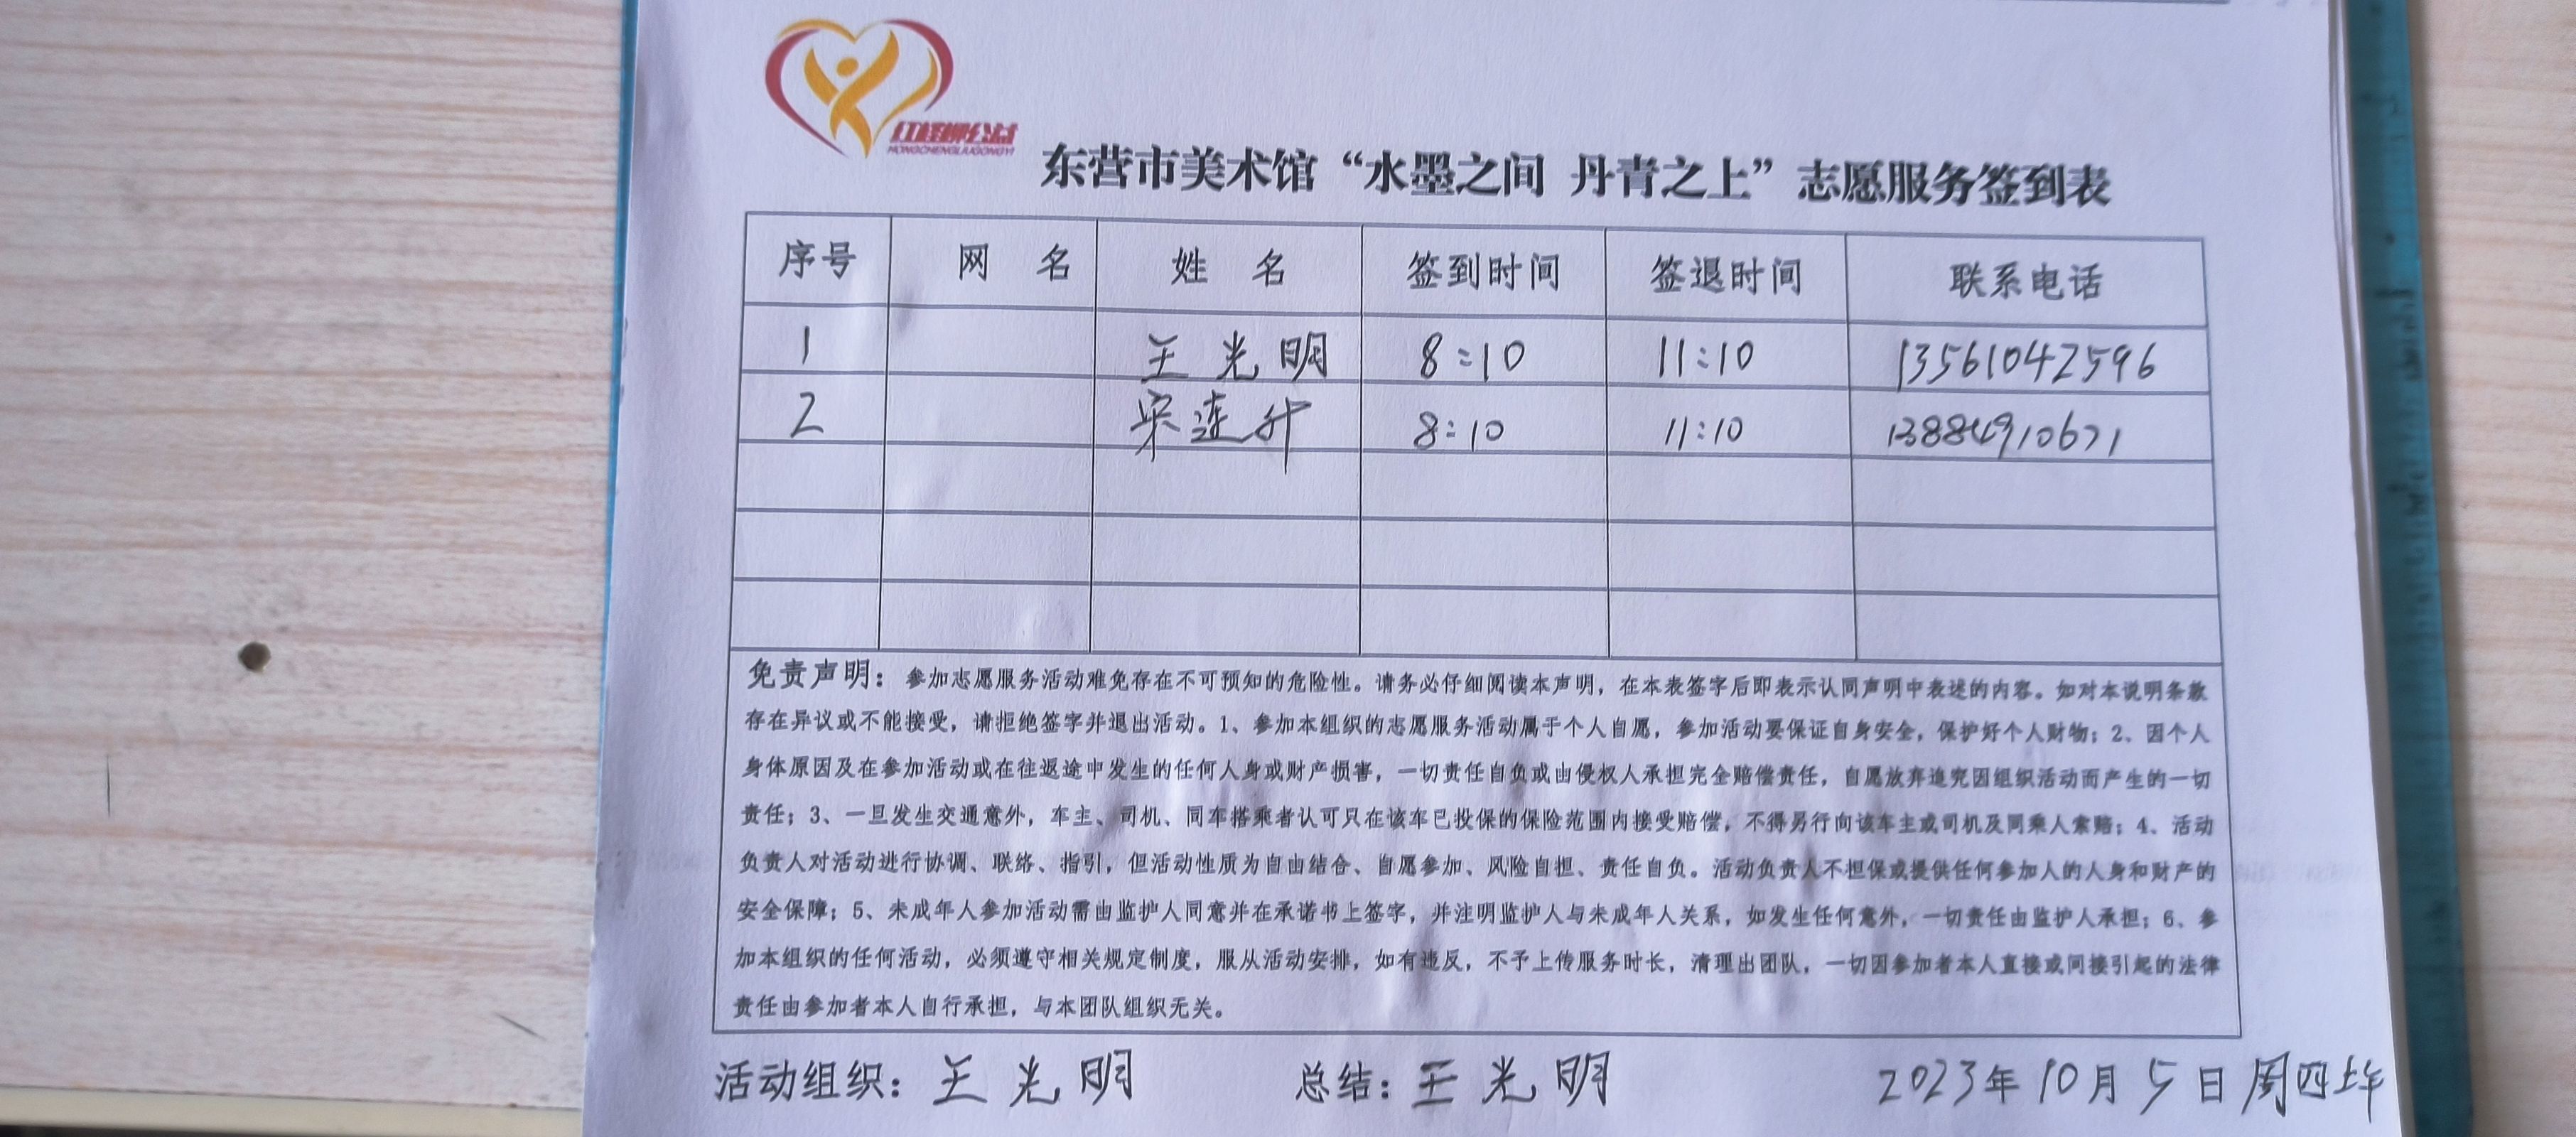 红柽柳公益
HONGCHENGLIUGONGYI
东营市美术馆“水墨之间 丹青之上”志愿服务签到表
序号 网 名 姓 名 签到时间 签退时间 联系电话
1 王光明 8:10 11:10 13561042596
2 宋连升 8:10 11:10 13884910671
免责声明：参加志愿服务活动难免存在不可预知的危险性。请务必仔细阅读本声明，在本表签字后即表示认同声明中表述的内容。如对本说明条款
存在异议或不能接受，请拒绝签字并退出活动。1、参加本组织的志愿服务活动属于个人自愿，参加活动要保证自身安全，保护好个人财物；2、因个人
身体原因及在参加活动或在往返途中发生的任何人身或财产损害，一切责任自负或由侵权人承担完全赔偿责任，自愿放弃追究因组织活动而产生的一切
责任；3、一旦发生交通意外，车主、司机、同车搭乘者认可只在该车已投保的保险范围内接受赔偿，不得另行向该车主或司机及同乘人索赔；4、活动
负责人对活动进行协调、联络、指引，但活动性质为自由结合、自愿参加、风险自担、责任自负。活动负责人不担保或提供任何参加人的人身和财产的
安全保障；5、未成年人参加活动需由监护人同意并在承诺书上签字，并注明监护人与未成年人关系，如发生任何意外，一切责任由监护人承担；6、参
加本组织的任何活动，必须遵守相关规定制度，服从活动安排，如有违反，不予上传服务时长，清理出团队，一切因参加者本人直接或间接引起的法律
责任由参加者本人自行承担，与本团队组织无关。
活动组织：王光明 总结：王光明 2023年10月5日周四上午